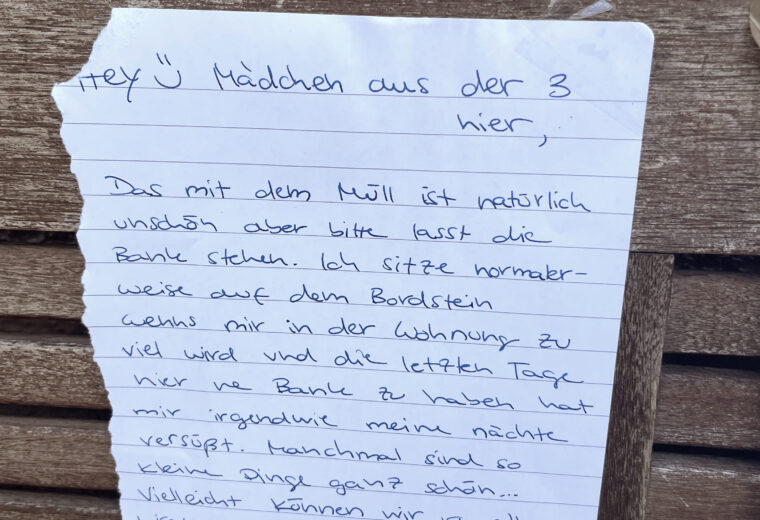 Hey Ü Mädchen aus der 3
hier,
Das mit dem Müll ist natürlich
unschön aber bitte lasst die
Bank stehen. Ich sitze normaler-
weise auf dem Bordstein
wenns mir in der Wohnung zu
viel wird und die letzten Tage
hier ne Bank zu haben hat
mir irgendwie meine nächte
versüßt. Manchmal sind so
kleine Dinge ganz schön...
Vielleicht können wir